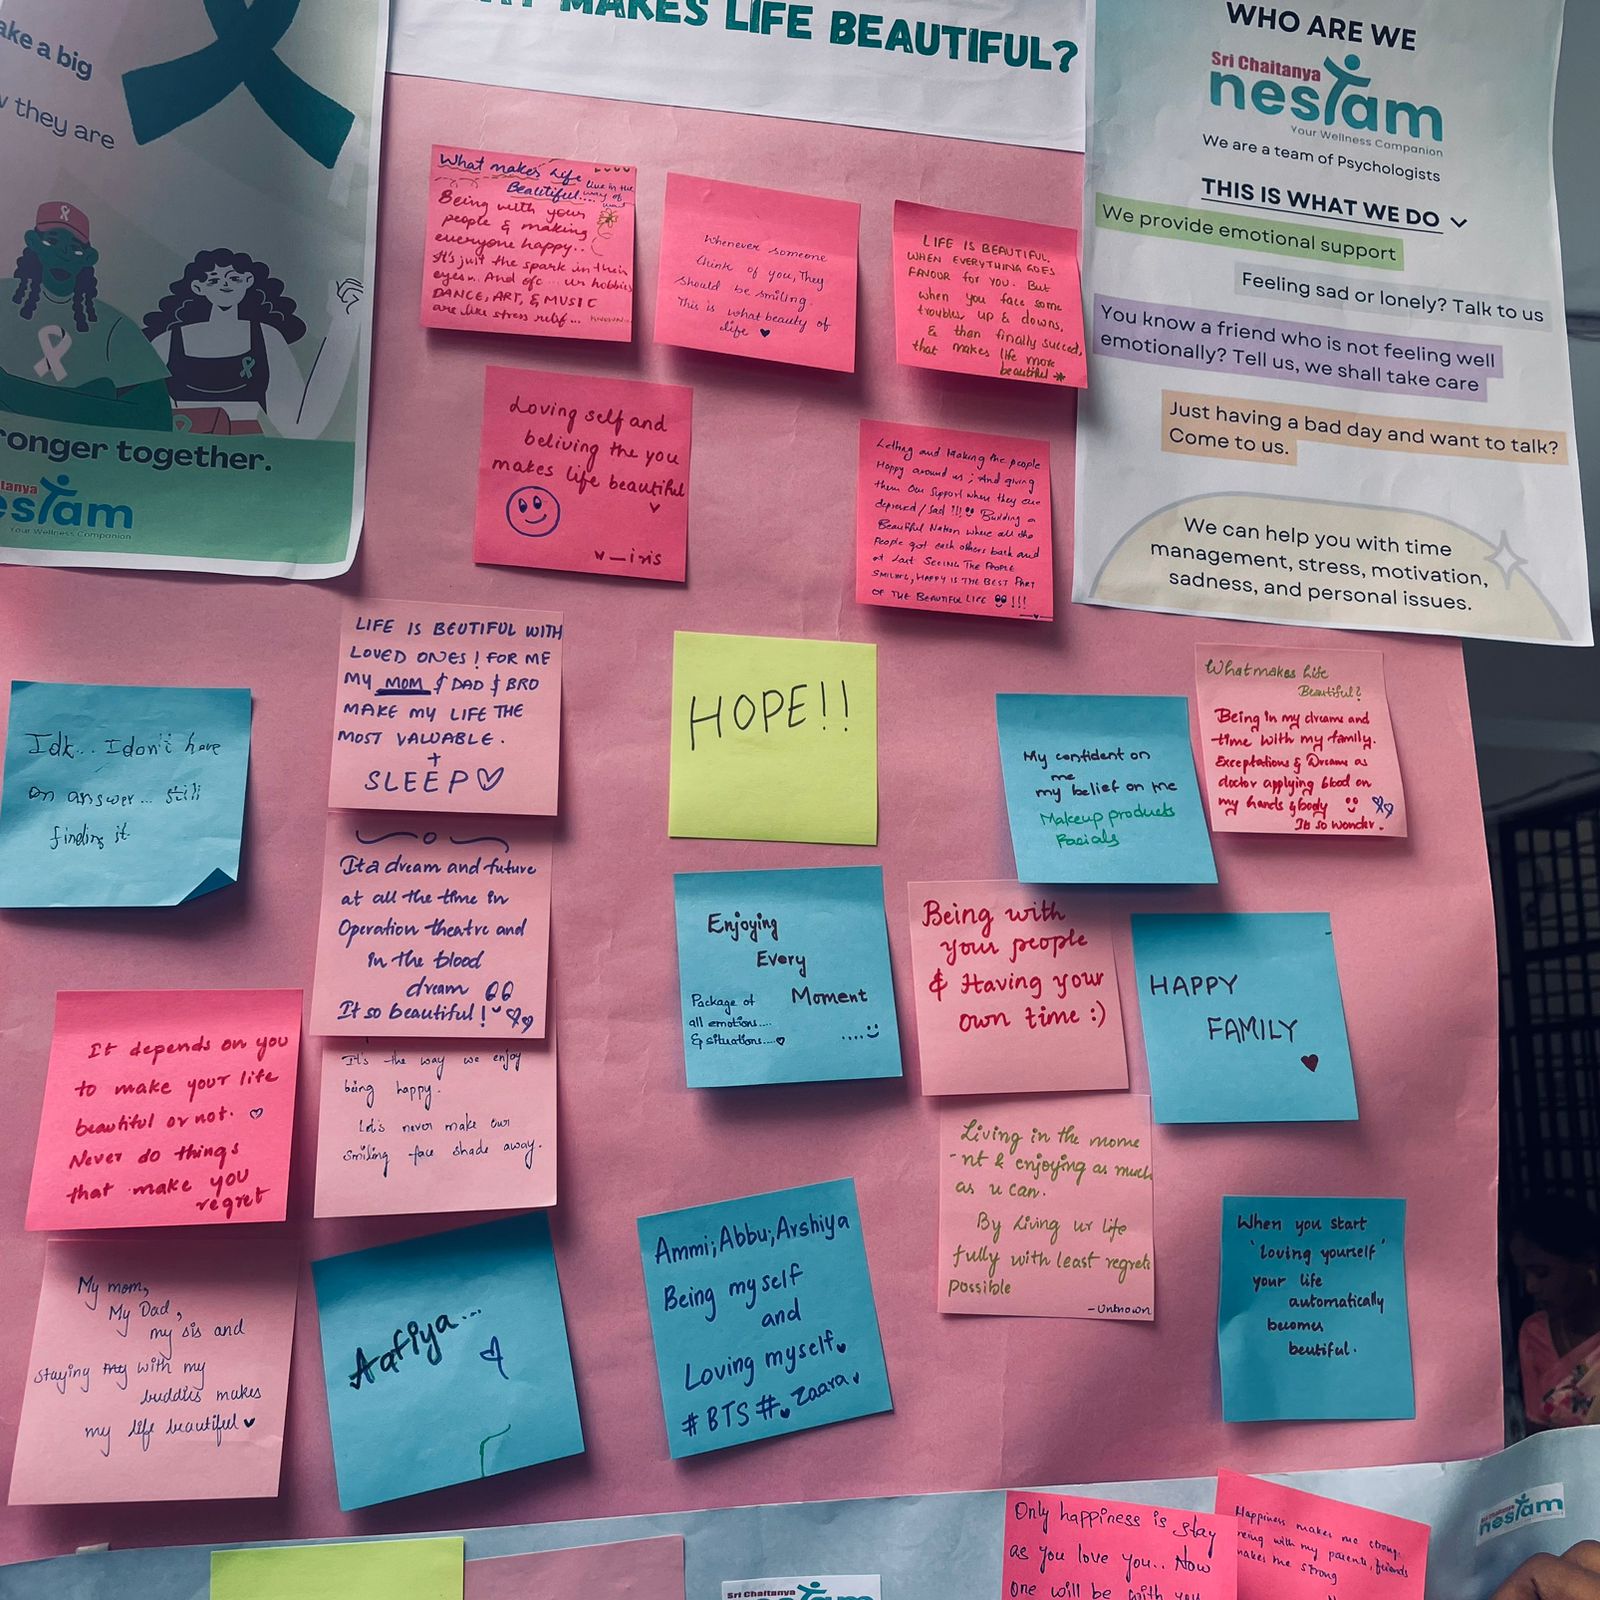 ake a big
they are
ronger together.
anya
estam
Your Wellness Companion
MAKES LIFE BEAUTIFUL?
WHO ARE WE
Sri Chaitanya
nestam
Your Wellness Companion
We are a team of Psychologists
THIS IS WHAT WE DO
We provide emotional support
Feeling sad or lonely? Talk to us
You know a friend who is not feeling well
emotionally? Tell us, we shall take care
Just having a bad day and want to talk?
Come to us.
We can help you with time
management, stress, motivation,
sadness, and personal issues.
What makes Life
Beautiful....
live in the
way of
Being with your
people & making
everyone happy..
It's just the spark in their
eyes... And ofc... ur hobbies
DANCE, ART, & MUSIC
are like stress relif...
Whenever someone
think of you, They
should be smiling.
This is what beauty of
life ♥
LIFE IS BEAUTIFUL.
WHEN EVERYTHING GOES
FAVOUR for you. But
when you face some
troubles, up & downs,
& then finally succed,
that makes life more
beautiful
Loving self and
beliving the you
makes life beautiful
iris
Lething and Making the people
Happy around us ; And giving
them our support when they are
depressed / sad !!! Building a
Beautiful Nation where all the
People got each others back and
at last SEEING THE PEOPLE
SMILING, HAPPY IS THE BEST PART
OF THE BEAUTIFUL LIFE !!!
Idk... I don't have
an answer... still
finding it
LIFE IS BEUTIFUL WITH
LOVED ONES! FOR ME
MY MOM & DAD & BRO
MAKE MY LIFE THE
MOST VALUABLE.
+
SLEEP♡
HOPE!!
My confident on
me
my belief on me
Makeup products
Facials
What makes Life
Beautiful?
Being in my dreams and
time with my family.
Exceptations & Dreams as
doctor applying blood on
my hands & body
Its so wonder.
Its a dream and future
at all the time in
Operation theatre and
in the blood
dream
It so beautiful!
Enjoying
Every
Moment
Package of
all emotions....
& situations....♡
....
Being with
your people
& Having your
own time :)
HAPPY
FAMILY
♥
It depends on you
to make your life
beautiful or not. ♡
Never do things
that make you
regret
It's the way we enjoy
being happy.
Let's never make our
smiling face shade away.
Living in the mome
-nt & enjoying as much
as u can.
By living ur life
fully with least regrets
possible
-Unknown
My mom,
My Dad,
my sis and
staying with my
buddies makes
my life beautiful♥
Aafiya...
Ammi;Abbu;Arshiya
Being myself
and
Loving myself♥
#BTS#♥Zaara♥
When you start
'loving yourself'
your life
automatically
becomes
beutiful.
Only happiness is stay
as you love you.. Now
one will be with you
Happiness makes me strong.
Being with my parents, friends
makes me strong
Sri Chaitanya
nestam
Sri Chaitanya